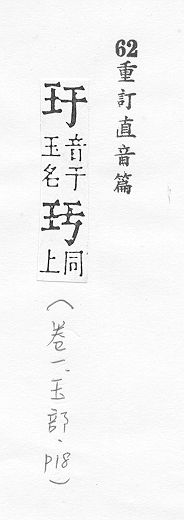 62重訂直音篇
玗
音干
玉名
同
上
(卷一、玉部、p18)